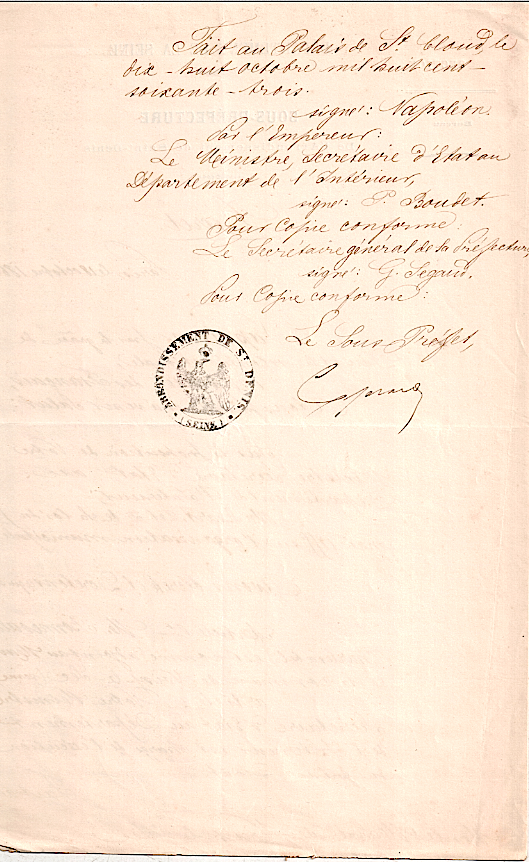 Fait au Palais de St. Cloud, le
dix-huit octobre mil huit cent-
soixante-trois.
signé: Napoléon.
Par l'Empereur:
Le Ministre, Secrétaire d'Etat au
Département de l'Intérieur,
signé: P. Boudet.
Pour Copie conforme:
Le Secrétaire général de la Préfecture,
signé: G. Segaud.
Pour Copie conforme:
Le Sous Préfet,
ARRONDISSEMENT DE ST DENIS
(SEINE)